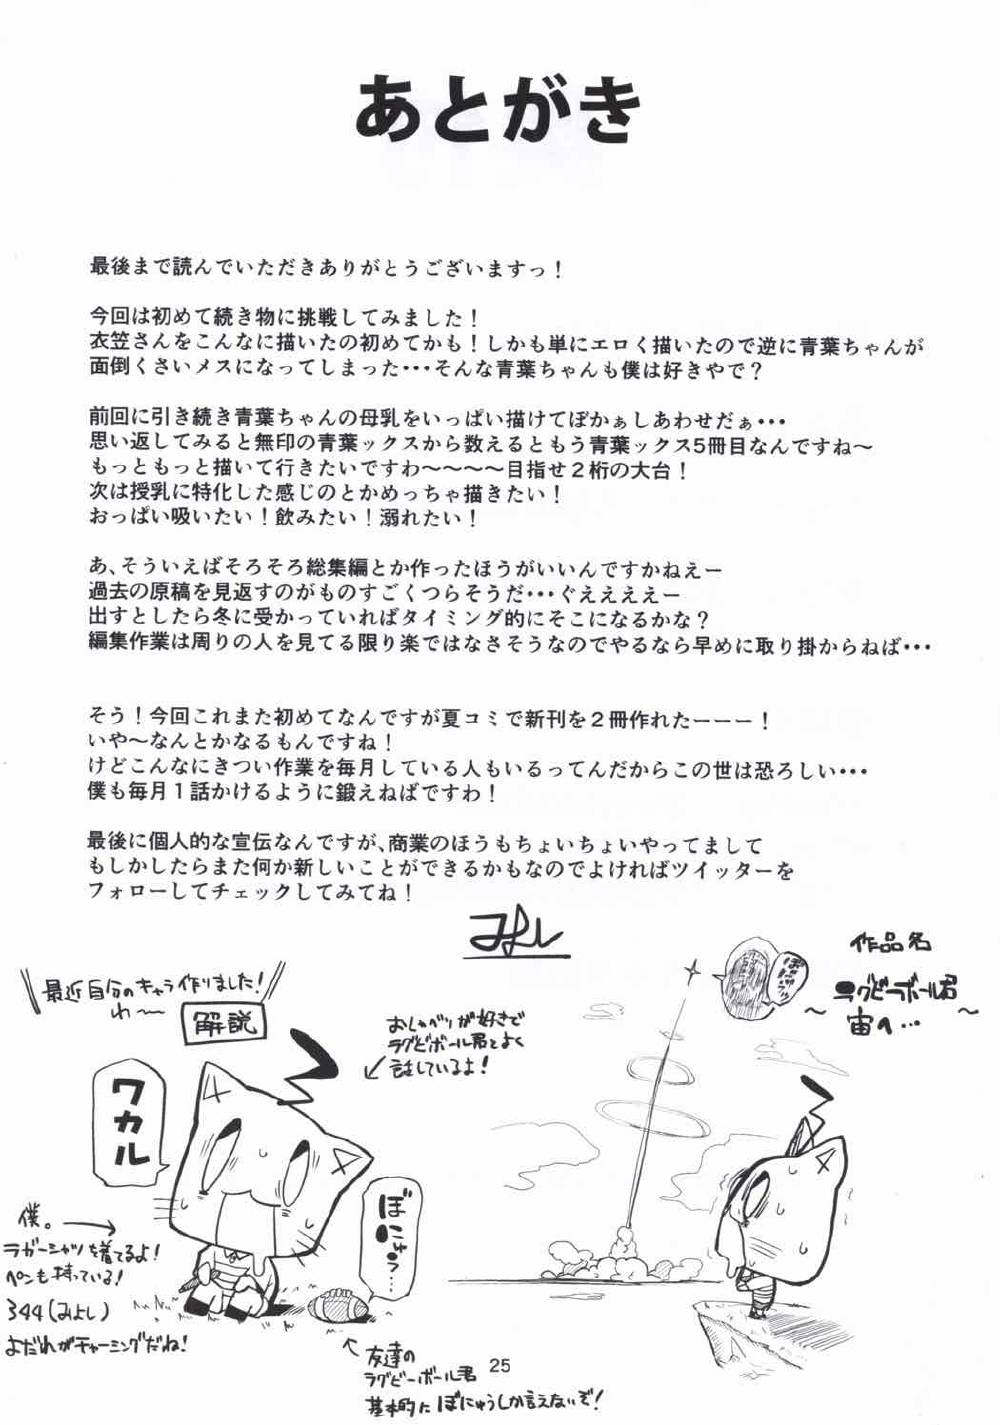 あとがき
最後まで読んでいただきありがとうございますっ！
今回は初めて続き物に挑戦してみました！
衣笠さんをこんなに描いたの初めてかも！しかも単にエロく描いたので逆に青葉ちゃんが
面倒くさいメスになってしまった・・・そんな青葉ちゃんも僕は好きやで？
前回に引き続き青葉ちゃんの母乳をいっぱい描けてぼかぁしあわせだぁ・・・
思い返してみると無印の青葉ックスから数えるともう青葉ックス5冊目なんですね～
もっともっと描いて行きたいですわ～～～～目指せ２桁の大台！
次は授乳に特化した感じのとかめっちゃ描きたい！
おっぱい吸いたい！飲みたい！溺れたい！
あ、そういえばそろそろ総集編とか作ったほうがいいんですかねえー
過去の原稿を見返すのがものすごくつらそうだ・・・ぐええええー
出すとしたら冬に受かっていればタイミング的にそこになるかな？
編集作業は周りの人を見てる限り楽ではなさそうなのでやるなら早めに取り掛からねば・・・
そう！今回これまた初めてなんですが夏コミで新刊を２冊作れたーーー！
いや～なんとかなるもんですね！
けどこんなにきつい作業を毎月している人もいるってんだからこの世は恐ろしい・・・
僕も毎月１話かけるように鍛えねばですわ！
最後に個人的な宣伝なんですが、商業のほうもちょいちょいやってまして
もしかしたらまた何か新しいことができるかもなのでよければツイッターを
フォローしてチェックしてみてね！
みよし
最近自分のキャラ作りました！
わ～～
解説
ワカル
おしゃべりが好きで
ラグビーボール君とよく
話しているよ！
ぼにゅう？…
僕。
ラガーシャツを着てるよ！
ペンも持っている！
344(みよし)
よだれがチャーミングだね！
友達の
ラグビーボール君
基本的にぼにゅうしか言えないぞ！
作品名
～ラグビーボール君
宙へ…～
25